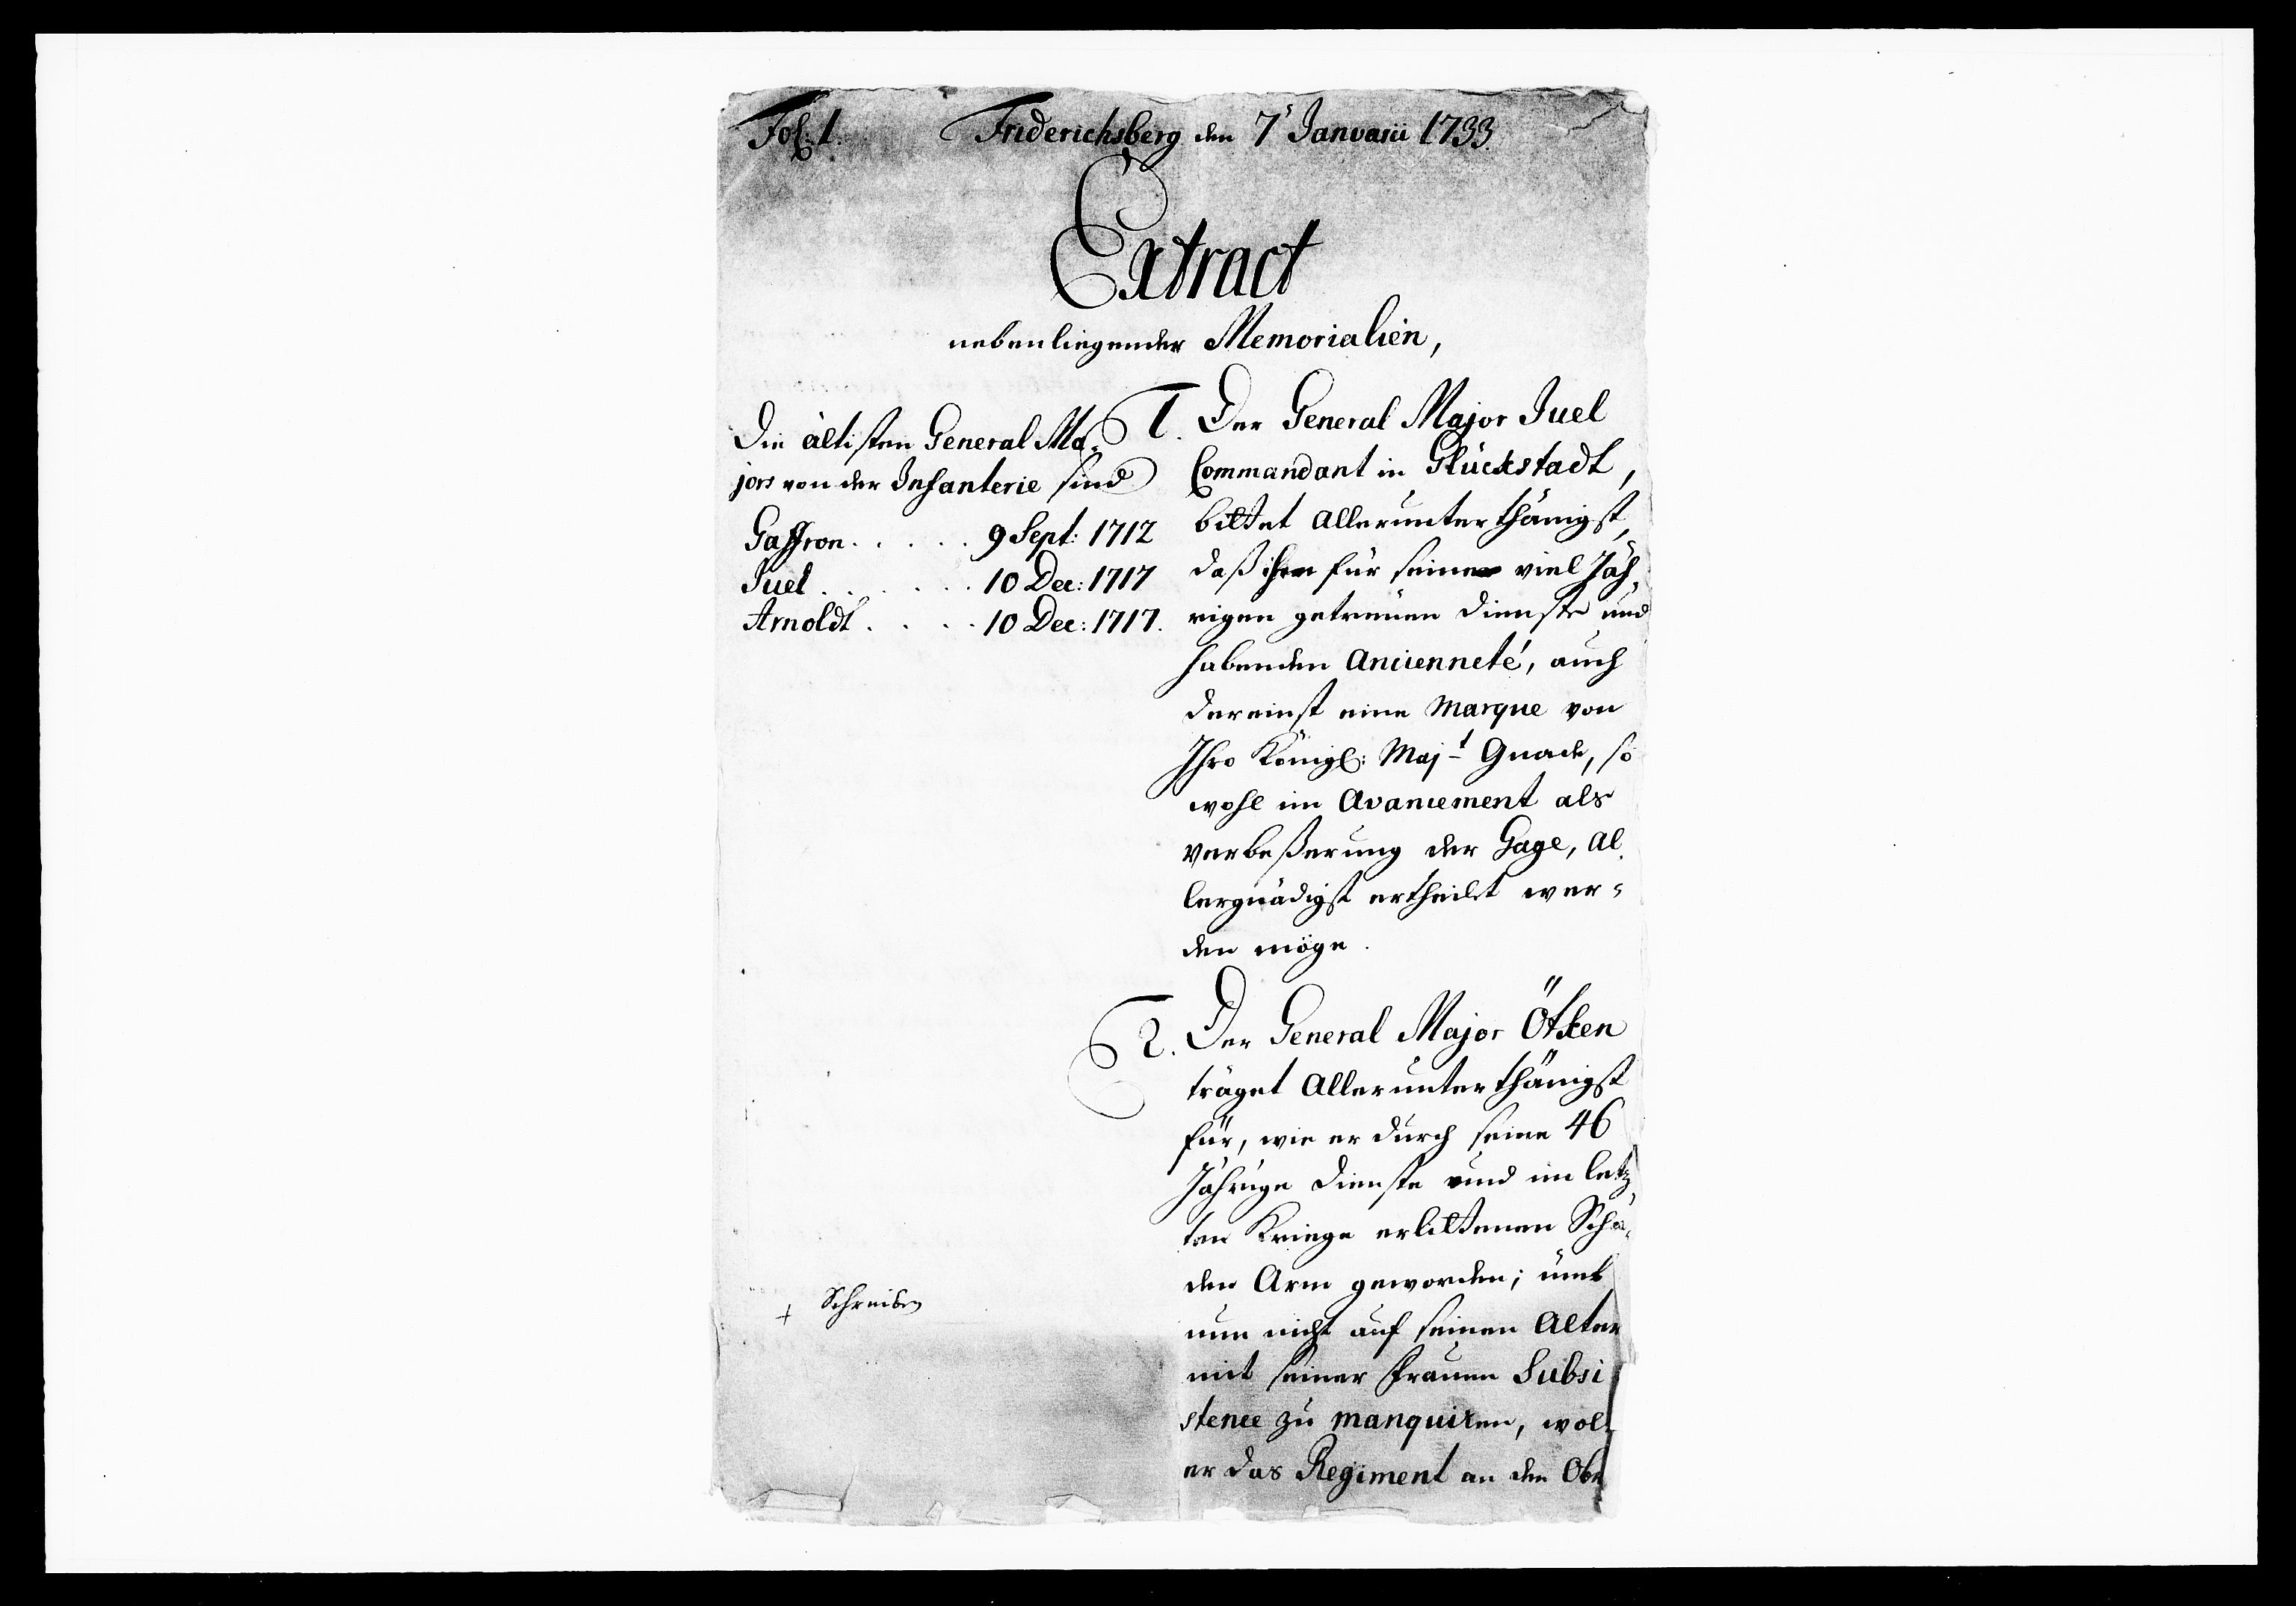 Fol: 1.
Friderichsberg den 7' Januarii 1733.
Extract
nebenliegender Memorialien,
Die ältisten General Ma-
jors von der Infanterie sind
Gaffron. . . . . 9 Sept: 1712
Juel . . . . . . 10 Dec: 1717
Arnoldt . . . . 10 Dec: 1717.
1. Der General Major Juel
Commandant in Glückstadt,
bittet allerunterthänigst,
daß ihm für seine viel Jäh-
rigen getreuen Dienste und
habenden Ancienneté, auch
dereinst eine Marque von
Ihro Königl: Maj-t Gnade, so
wohl im Avancement als
verbeßerung der Gage, al-
lergnädigst ertheilet wer-
den möge.
2. Der General Major Ötken
träget allerunterthänigst
für, wie er durch seine 46
Jährige Dienste und im letz
ten Kriege erlittenen Scha-
den Arm geworden; umb
nun nicht auf seinen Alter
mit seiner Frauen Subsi
stence zu manquiren, wol-
er das Regiment an den Obr
+ Schreiben